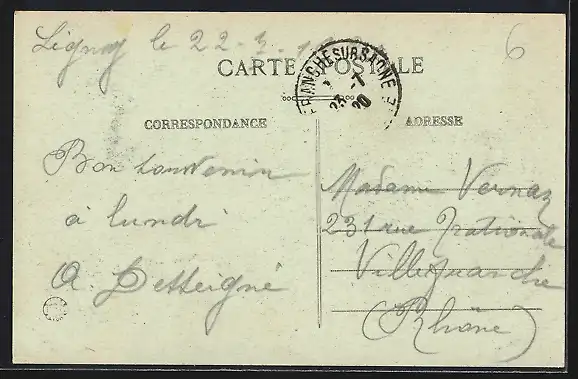 Lignay le 22-7-1920
6
CARTE POSTALE
FRANCHE SUR SAONE
23 -7
20
CORRESPONDANCE
ADRESSE
Bon souvenir
à lundi
A. Detteigné
Madame Vernay
231 rue Nationale
Villefranche
(Rhône)